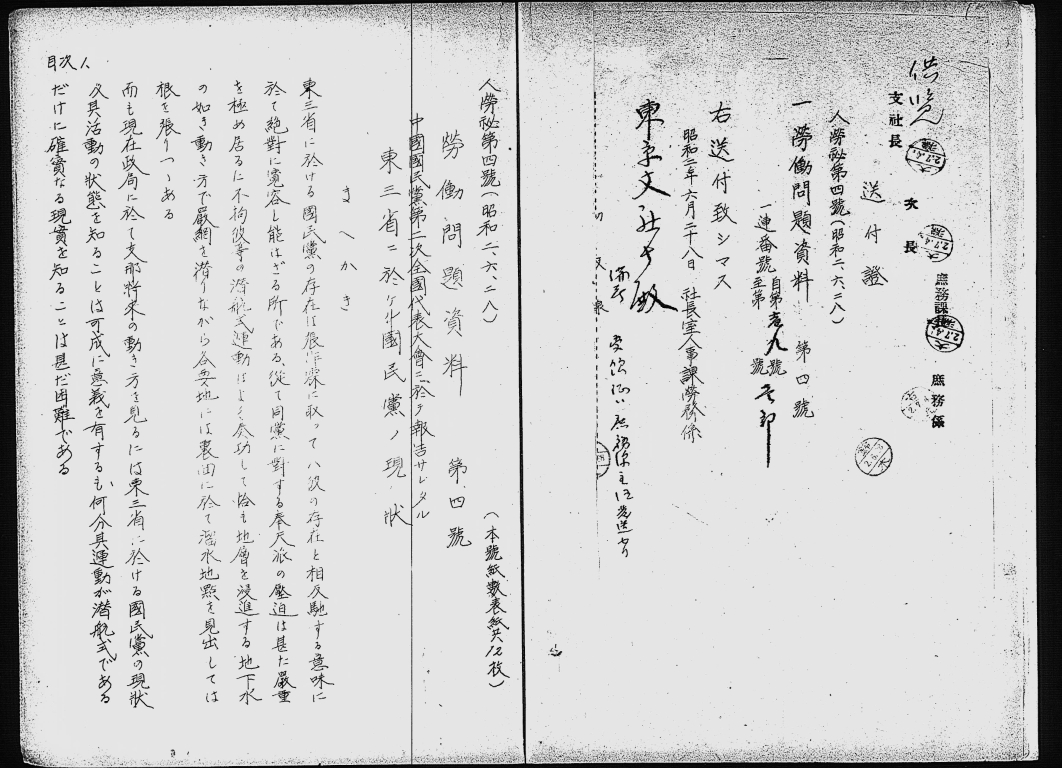 供覽
支社長
次長
庶務課長
庶務係
送付證
人勞秘第四號(昭和二、六、二八)
一 勞働問題資料 第四號
一連番號 自第壱九號
至第 號 壱部
右送付致シマス
昭和二年六月二十八日 社長室人事課勞務係
東京支社長殿
人勞秘第四號(昭和二、六、二八) (本號紙數表紙共12枚)
勞働問題資料 第四號
中國國民黨第二次全國代表大會ニ於テ報告サレタル
東三省ニ於ケル國民黨ノ現狀
まへかき
東三省に於ける國民黨の存在は張作霖に取って八路の存在と相反馳する意味に
於て絶對に寬容し能はざる所である、從て同黨に對する奉天派の壓迫は甚だ嚴重
を極め居るに不拘彼等の潜航式運動はよく奏功して恰も地層を浸進する地下水
の如き動き方で嚴網を潜りながら各要地には裏面に於て溜水地點を見出しては
根を張りつゝある
而も現在政局に於て支那將來の動き方を見るには東三省に於ける國民黨の現狀
及其活動の狀態を知ることは可成に意義を有するも何分其運動が潜航式である
だけに確實なる現實を知ることは甚だ困難である
目次